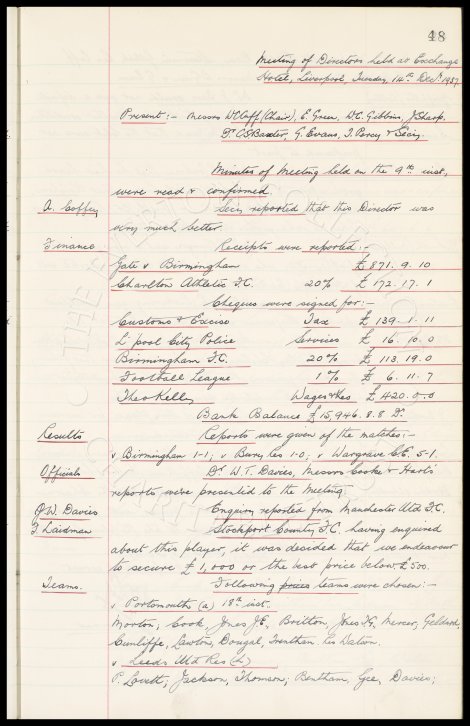 48
Meeting of Directors held at Exchange
Hotel, Liverpool, Tuesday, 14th Decr. 1937
Present:- Messrs W.C. Cuff (Chair), E. Green, W.C. Gibbins, J. Sharp,
Dr. C.S. Baxter, G. Evans, T. Percy & Secy.
Minutes of Meeting held on the 9th inst.,
were read & confirmed.
A. Coffey Secy. reported that this Director was
very much better.
Finance Receipts were reported:-
Gate v Birmingham £871. 9. 10
Charlton Athletic F.C. 20% £172. 17. 1
Cheques were signed for:-
Customs & Excise Tax £139. 1. 11
L'pool City Police Services £16. 10. 0
Birmingham F.C. 20% £113. 19. 0
Football League 1% £6. 11. 7
Theo Kelly Wages &c £420. 0. 0
Bank Balance £15,946. 8. 8 Dr.
Results Reports were given of the matches:-
v Birmingham 1-1, v Bury Res 1-0, v Wargrave C.E. 5-1.
Officials Dr. W.T. Davies, Messrs Cooke & Harts'
reports were presented to the Meeting.
J.W. Davies Enquiry reported from Manchester Utd F.C.
T. Laidman Stockport County F.C. having enquired
about this player, it was decided that we endeavour
to secure £1,000 or the best price below £500.
Teams. Following prices teams were chosen:-
v Portsmouth (a) 18th inst.
Morton, Cook, Jones J.E., Britton, Jones T.G., Mercer, Geldard,
Cunliffe, Lawton, Dougal, Trentham. Res Watson.
v Leeds Utd Res (h)
P. Lovett, Jackson, Thomson, Bentham, Gee, Davies;